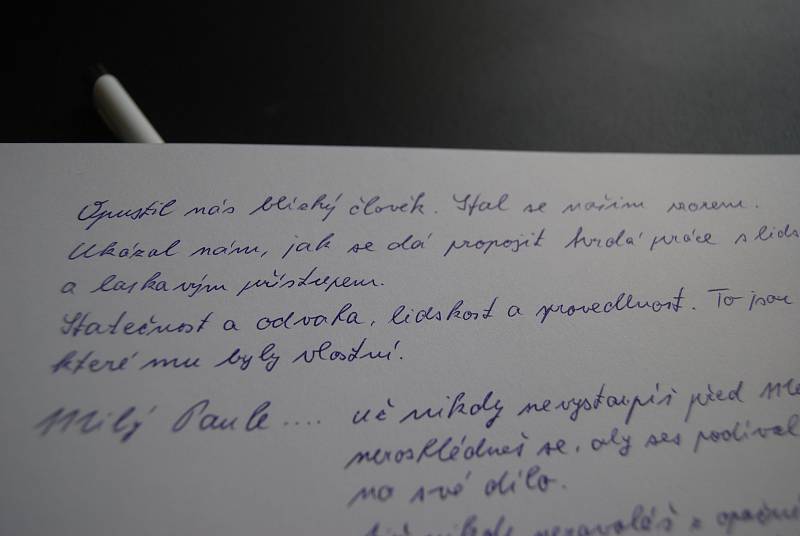 Opustil nás blízký člověk. Stal se naším vzorem.
Ukázal nám, jak se dá propojit tvrdá práce s lids
a laskavým přístupem.
Statečnost a odvaha, lidskost a spravedlnost. To jsou
které mu byly vlastní.
Milý Paule .... už nikdy nevystoupíš před
nerozhlédneš se, aby ses podíval
na své dílo.
nikdy nezavoláš z